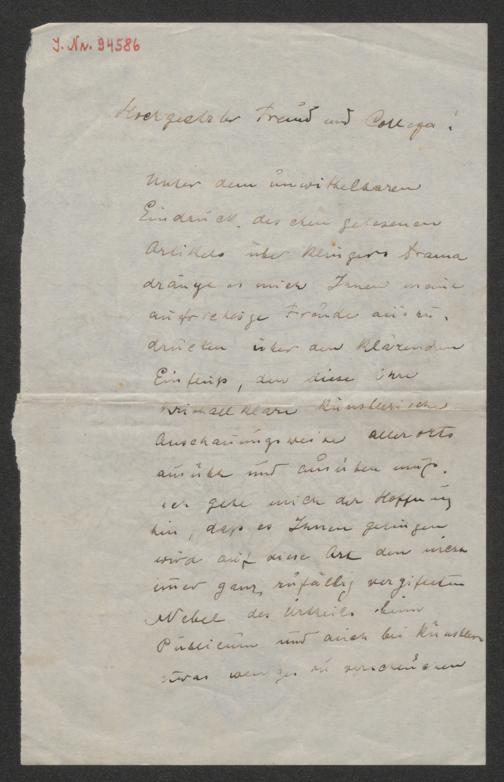 J. Nr. 94586
Hochgeehrter Freund und Collega!
Unter dem unmittelbaren
Eindruck des eben gelesenen
Artikels über Klingers Drama
drängt es mich Ihnen meine
aufrichtige Freude auszu-
drücken über den klärenden
Einfluss, den diese Ihre
kristallklare künstlerische
Anschauungsweise allerorts
ausübt und ausüben muss.
Ich gebe mich der Hoffnung
hin, dass es Ihnen gelingen
wird auf diese Art den nicht
immer ganz zufällig vergifteten
Nebel des Urtheils beim
Publicum und auch bei Künstlern
etwas weniger zu